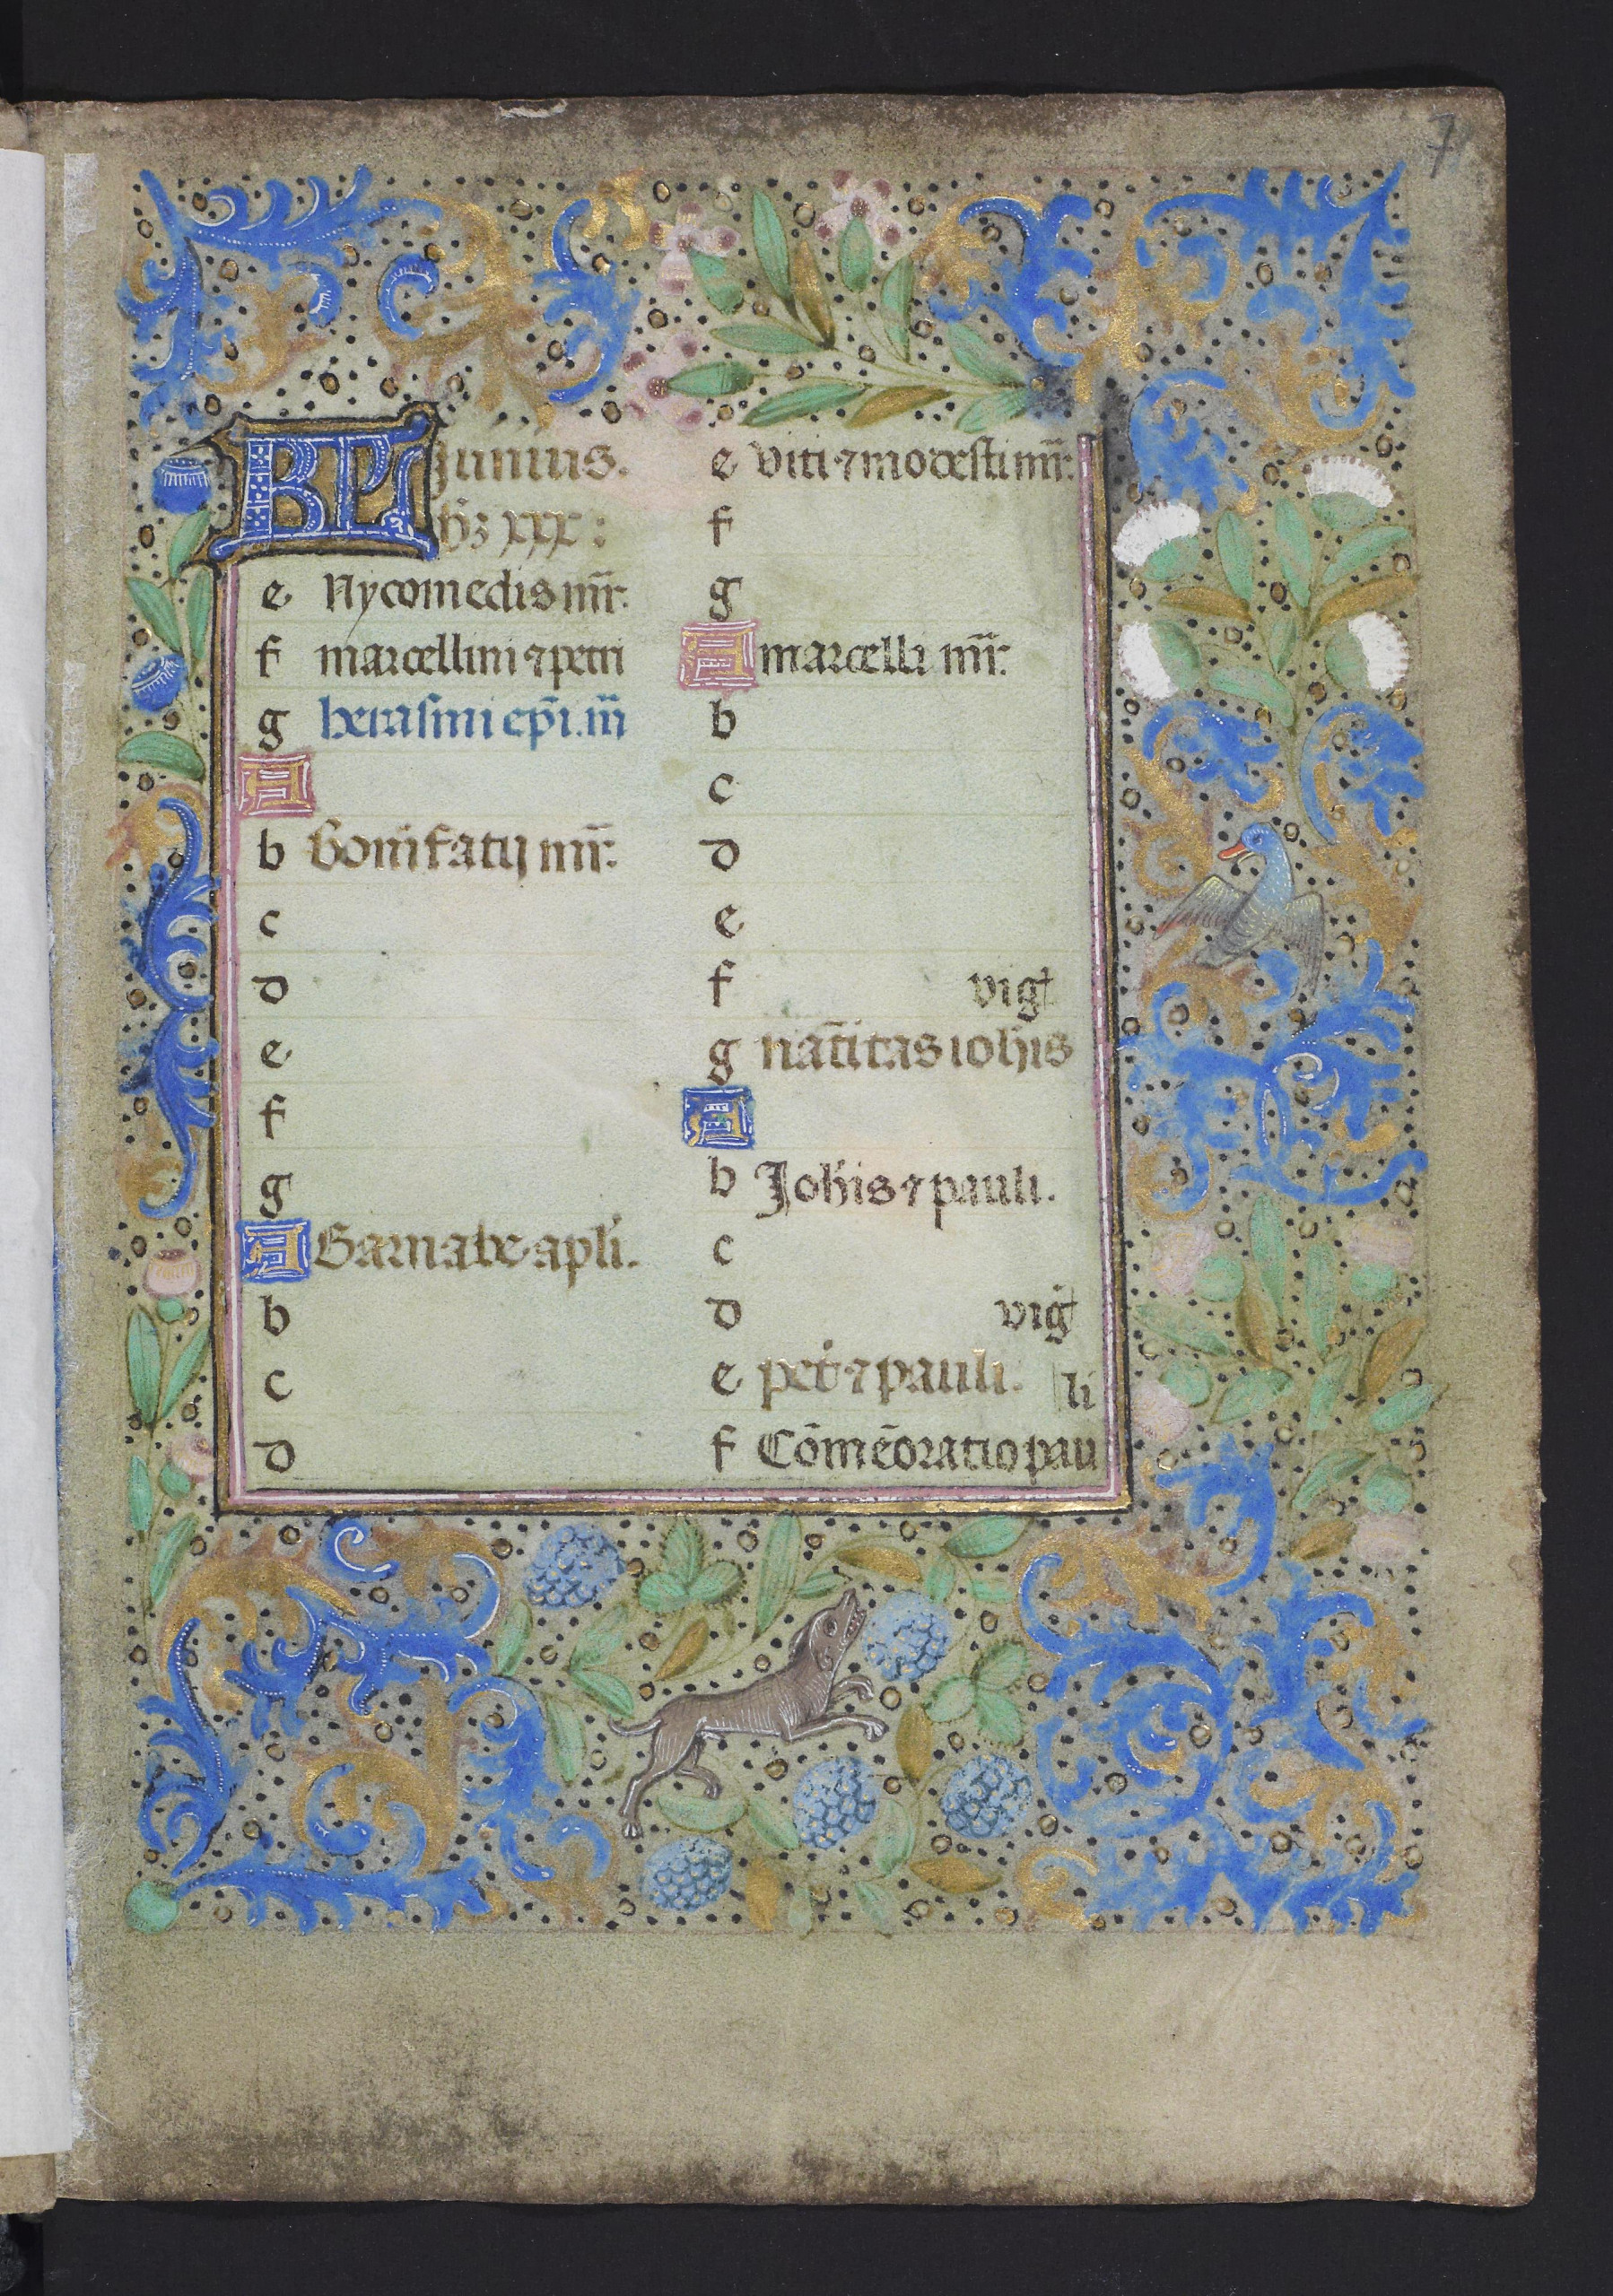 7
KL Junius.
hꝫ xxx:
e Nycomedis mr̄.
f marcellini ⁊ petri
g herasmi ep̄i. m̄
A
b Bonifatij mr̄.
c
d
e
f
g
A Barnabe apl̄i.
b
c
d
e Viti ⁊ modesti mr̄.
f
g
A marcelli mr̄.
b
c
d
e
f vigł
g nat̄itas ioħis
A
b Joħis ⁊ pauli.
c
d vigł
e pet̄ ⁊ pauli.
li
f Cōmēoratio pau